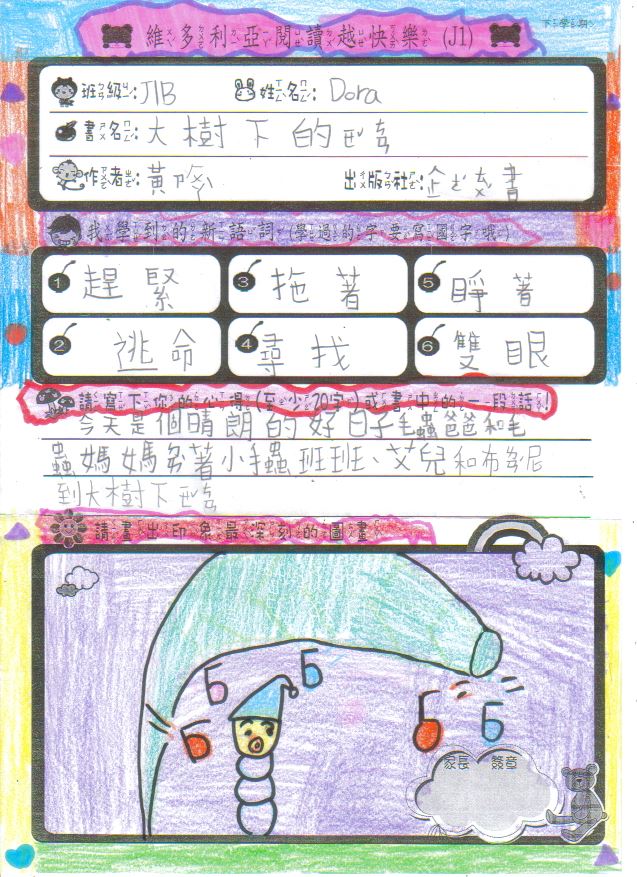 維多利亞閱讀越快樂 (J1)
下學期
班級:J1B 姓名:Dora
書名:大樹下的ㄧㄣ
作者:黃吟 出版社:企ㄜ文書
我學到的新語詞(學過的字要寫國字哦!)
1 趕緊 3 拖著 5 睜著
2 逃命 4 尋找 6 雙眼
請寫下你的心得(至少20字)或書中的一段話!
今天是個晴朗的好日子毛蟲爸爸和毛
蟲媽媽ㄉㄞ著小蟲班班、艾兒和布
到大樹下
請畫出印象最深刻的圖畫
家長 簽章